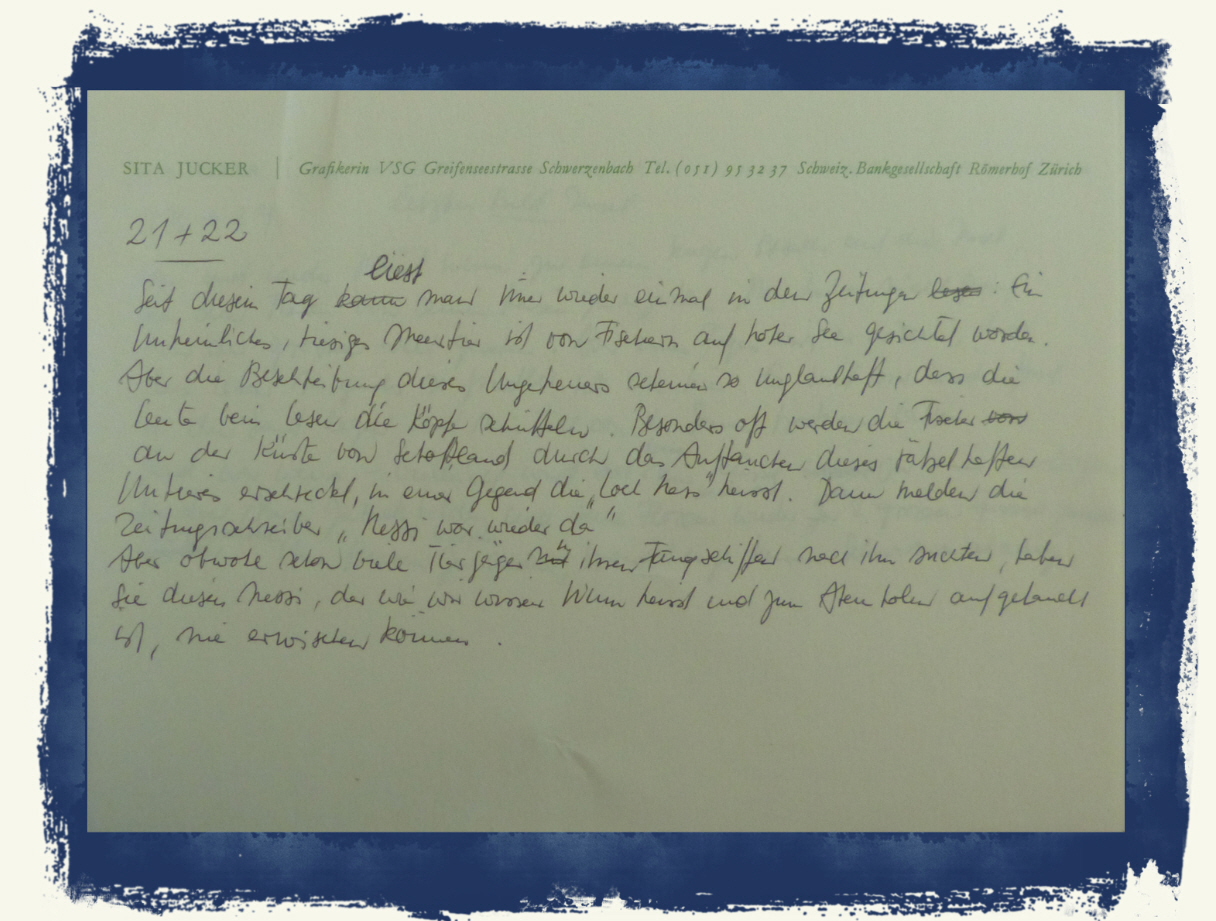 SITA JUCKER | Grafikerin VSG Greifenseestrasse Schwerzenbach Tel. (051) 95 32 37 Schweiz. Bankgesellschaft Römerhof Zürich
21 + 22
liest
Seit diesem Tag kann man immer wieder einmal in den Zeitungen lesen: Ein
Unheimliches, riesiges Meertier ist von Fischern auf hoher See gesichtet worden.
Aber die Beschreibung dieses Ungeheuers scheinen so unglaubhaft, dass die
Leute beim lesen die Köpfe schütteln. Besonders oft werden die Fischer
an der Küste von Schottland durch das Auftauchen dieses rätselhaften
Untieres erschreckt, in einer Gegend die „Loch Ness" heisst. Dann melden die
Zeitungsschreiber „Nessi war wieder da"
Aber obwohl schon viele Tierjäger mit ihren Fangschiffen nach ihm suchten, haben
sie diesen Nessi, der wie wir wissen heisst und zum Atem holen aufgetaucht
ist, nie erwischen können.